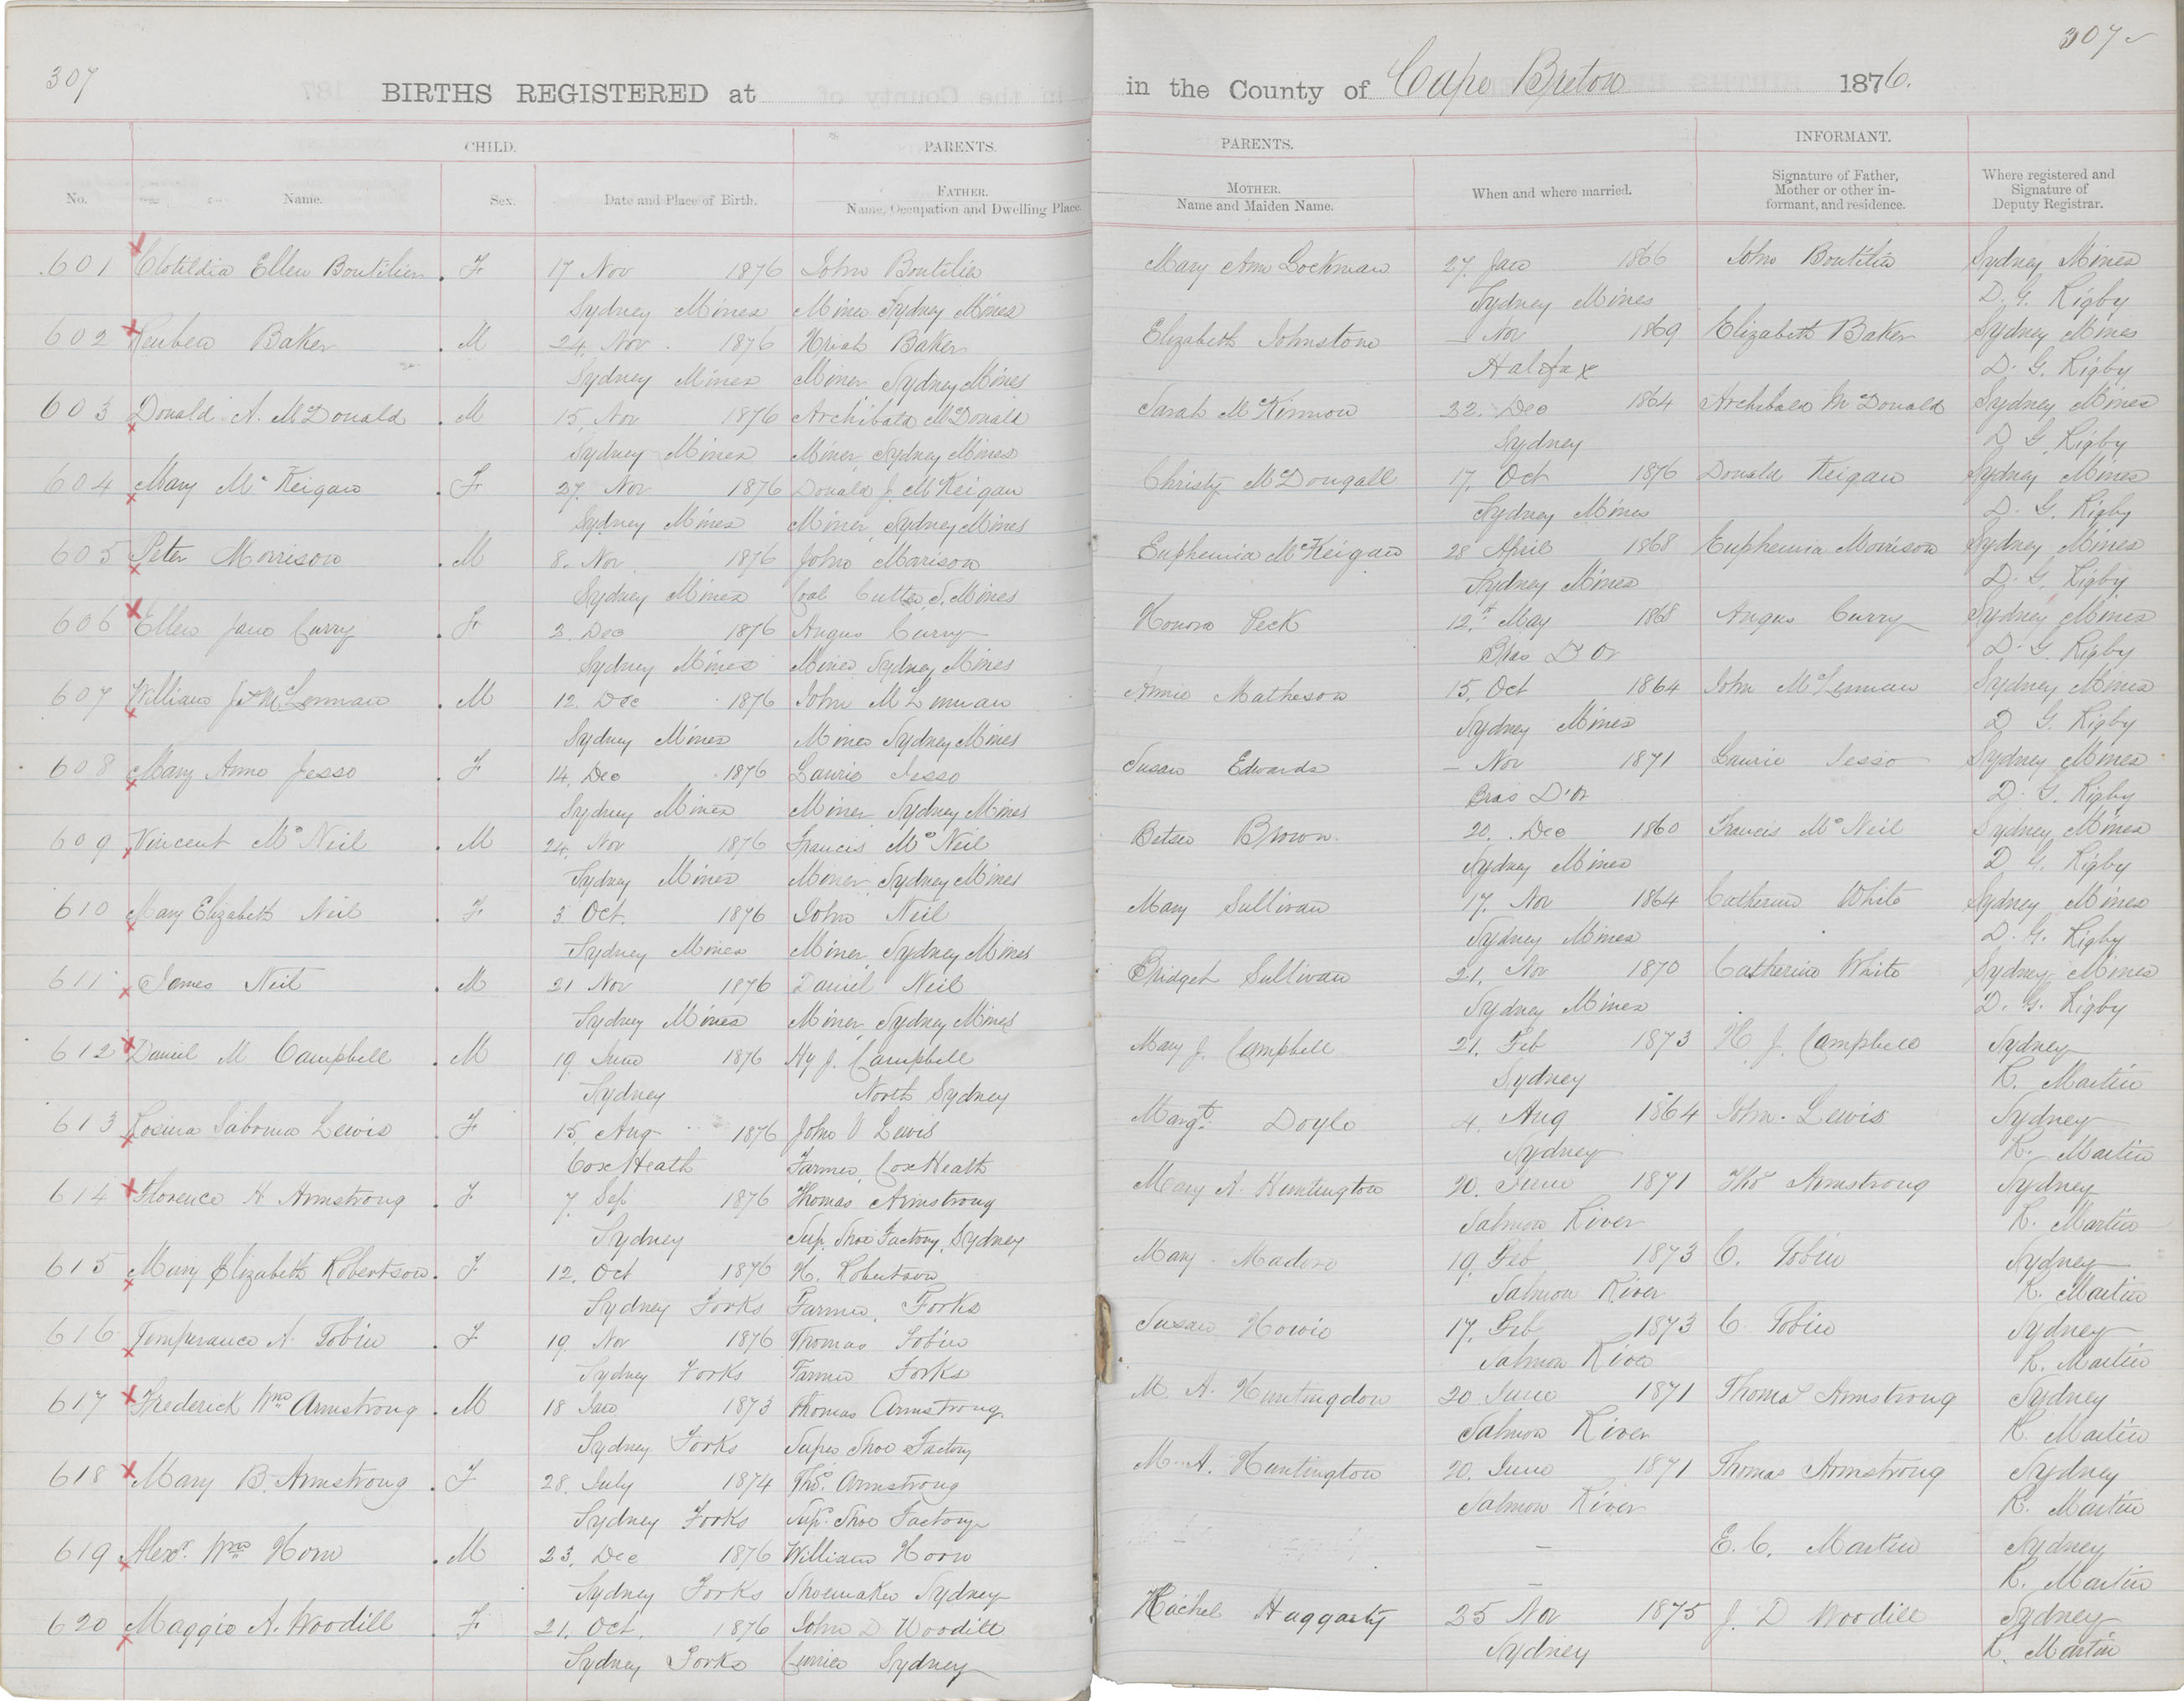 307
307
BIRTHS REGISTERED at
in the County of Cape Breton 1876.
CHILD. PARENTS. PARENTS. INFORMANT.
No. Name. Sex. Date and Place of Birth. FATHER. Name, Occupation and Dwelling Place. MOTHER. Name and Maiden Name. When and where married. Signature of Father, Mother or other informant, and residence. Where registered and Signature of Deputy Registrar.
601 Clotildia Ellen Boutilier F 17 Nov 1876 John Boutilier Mary Ann Lockman 27. Jan 1866 John Boutilier Sydney Mines
Sydney Mines Miner Sydney Mines Sydney Mines D. G. Rigby
602 Reuben Baker M 24. Nov 1876 Uriah Baker Elizabeth Johnstone – Nov 1869 Elizabeth Baker Sydney Mines
Sydney Mines Miner Sydney Mines Halifax D. G. Rigby
603 Donald A. McDonald M 15. Nov 1876 Archibald McDonald Sarah McKinnon 22. Dec 1864 Archibald McDonald Sydney Mines
Sydney Mines Miner Sydney Mines Sydney D G Rigby
604 Mary McKeigan F 27. Nov 1876 Donald J. McKeigan Christy McDougall 17. Oct 1876 Donald Keigan Sydney Mines
Sydney Mines Miner, Sydney Mines Sydney Mines D. G. Rigby
605 Peter Morrison M 8. Nov 1876 John Morison Euphemia McKeigan 28 April 1868 Euphemia Morrison Sydney Mines
Sydney Mines Coal Cutter, S. Mines Sydney Mines D. G. Rigby
606 Ellen Jane Curry F 2. Dec 1876 Angus Curry Honora Peck 12. May 1868 Angus Curry Sydney Mines
Sydney Mines Miner Sydney Mines Bras D'Or D. G. Rigby
607 William McLennan M 12. Dec 1876 John McLennan Annie Matheson 15. Oct 1864 John McLennan Sydney Mines
Sydney Mines Miner Sydney Mines Sydney Mines D G. Rigby
608 Mary Anne Jesso F 14. Dec 1876 Laurie Jesso Susan Edwards – Nov 1871 Laurie Jesso Sydney Mines
Sydney Mines Miner Sydney Mines Bras D'Or D. G. Rigby
609 Vincent McNeil M 24. Nov 1876 Francis McNeil Betsee Brown. 20. Dec 1860 Francis McNeil Sydney Mines
Sydney Mines Miner, Sydney Mines Sydney Mines D G. Rigby
610 Mary Elizabeth Neil F 3 Oct. 1876 John Neil Mary Sullivan 17. Nov 1864 Catherine White Sydney Mines
Sydney Mines Miner, Sydney Mines Sydney Mines D. G. Rigby
611 James Neil M 21 Nov 1876 Daniel Neil Bridget Sullivan 21. Nov 1870 Catherine White Sydney Mines
Sydney Mines Miner, Sydney Mines Sydney Mines D. G. Rigby
612 Daniel M Campbell M 19 June 1876 Hy J. Campbell Mary J. Campbell 21. Feb 1873 H J. Campbell Sydney
Sydney North Sydney Sydney R. Martin
613 Rosina Lewis F 15. Aug 1876 John V Lewis Margt. Doyle 4. Aug 1864 John Lewis Sydney
Cox Heath Farmer, Cox Heath Sydney R. Martin
614 Florence H Armstrong F 7. Sep 1876 Thomas Armstrong Mary A. Huntington 20. June 1871 Tho Armstrong Sydney
Sydney Sup. Shoe Factory, Sydney Salmon River R. Martin
615 Mary Elizabeth Robertson F 12. Oct 1876 H. Robertson Mary Madore 19. Feb 1873 C. Tobin Sydney
Sydney Forks Farmer, Forks Salmon River R. Martin
616 Temperance A. Tobin F 19 Nov 1876 Thomas Tobin Susan Howie 17. Feb 1873 C Tobin Sydney
Sydney Forks Farmer Forks Salmon River R. Martin
617 Frederick Wm Armstrong M 18 Jan 1873 Thomas Armstrong M. A. Huntingdon 20 June 1871 Thomas Armstrong Sydney
Sydney Forks Super Shoe Factory Salmon River R. Martin
618 Mary B. Armstrong F 28. July 1874 Tho. Armstrong M. A. Huntington 20. June 1871 Thomas Armstrong Sydney
Sydney Forks Sup. Shoe Factory Salmon River R. Martin
619 Alexr. Wm Horn M 23. Dec 1876 William Horn – – E. C. Martin Sydney
Sydney Forks Shoemaker Sydney – R. Martin
620 Maggie A. Woodill F 21. Oct. 1876 John D Woodill Rachel Haggarty 25 Nov 1875 J. D Woodill Sydney
Sydney Forks Currier Sydney Sydney R. Martin